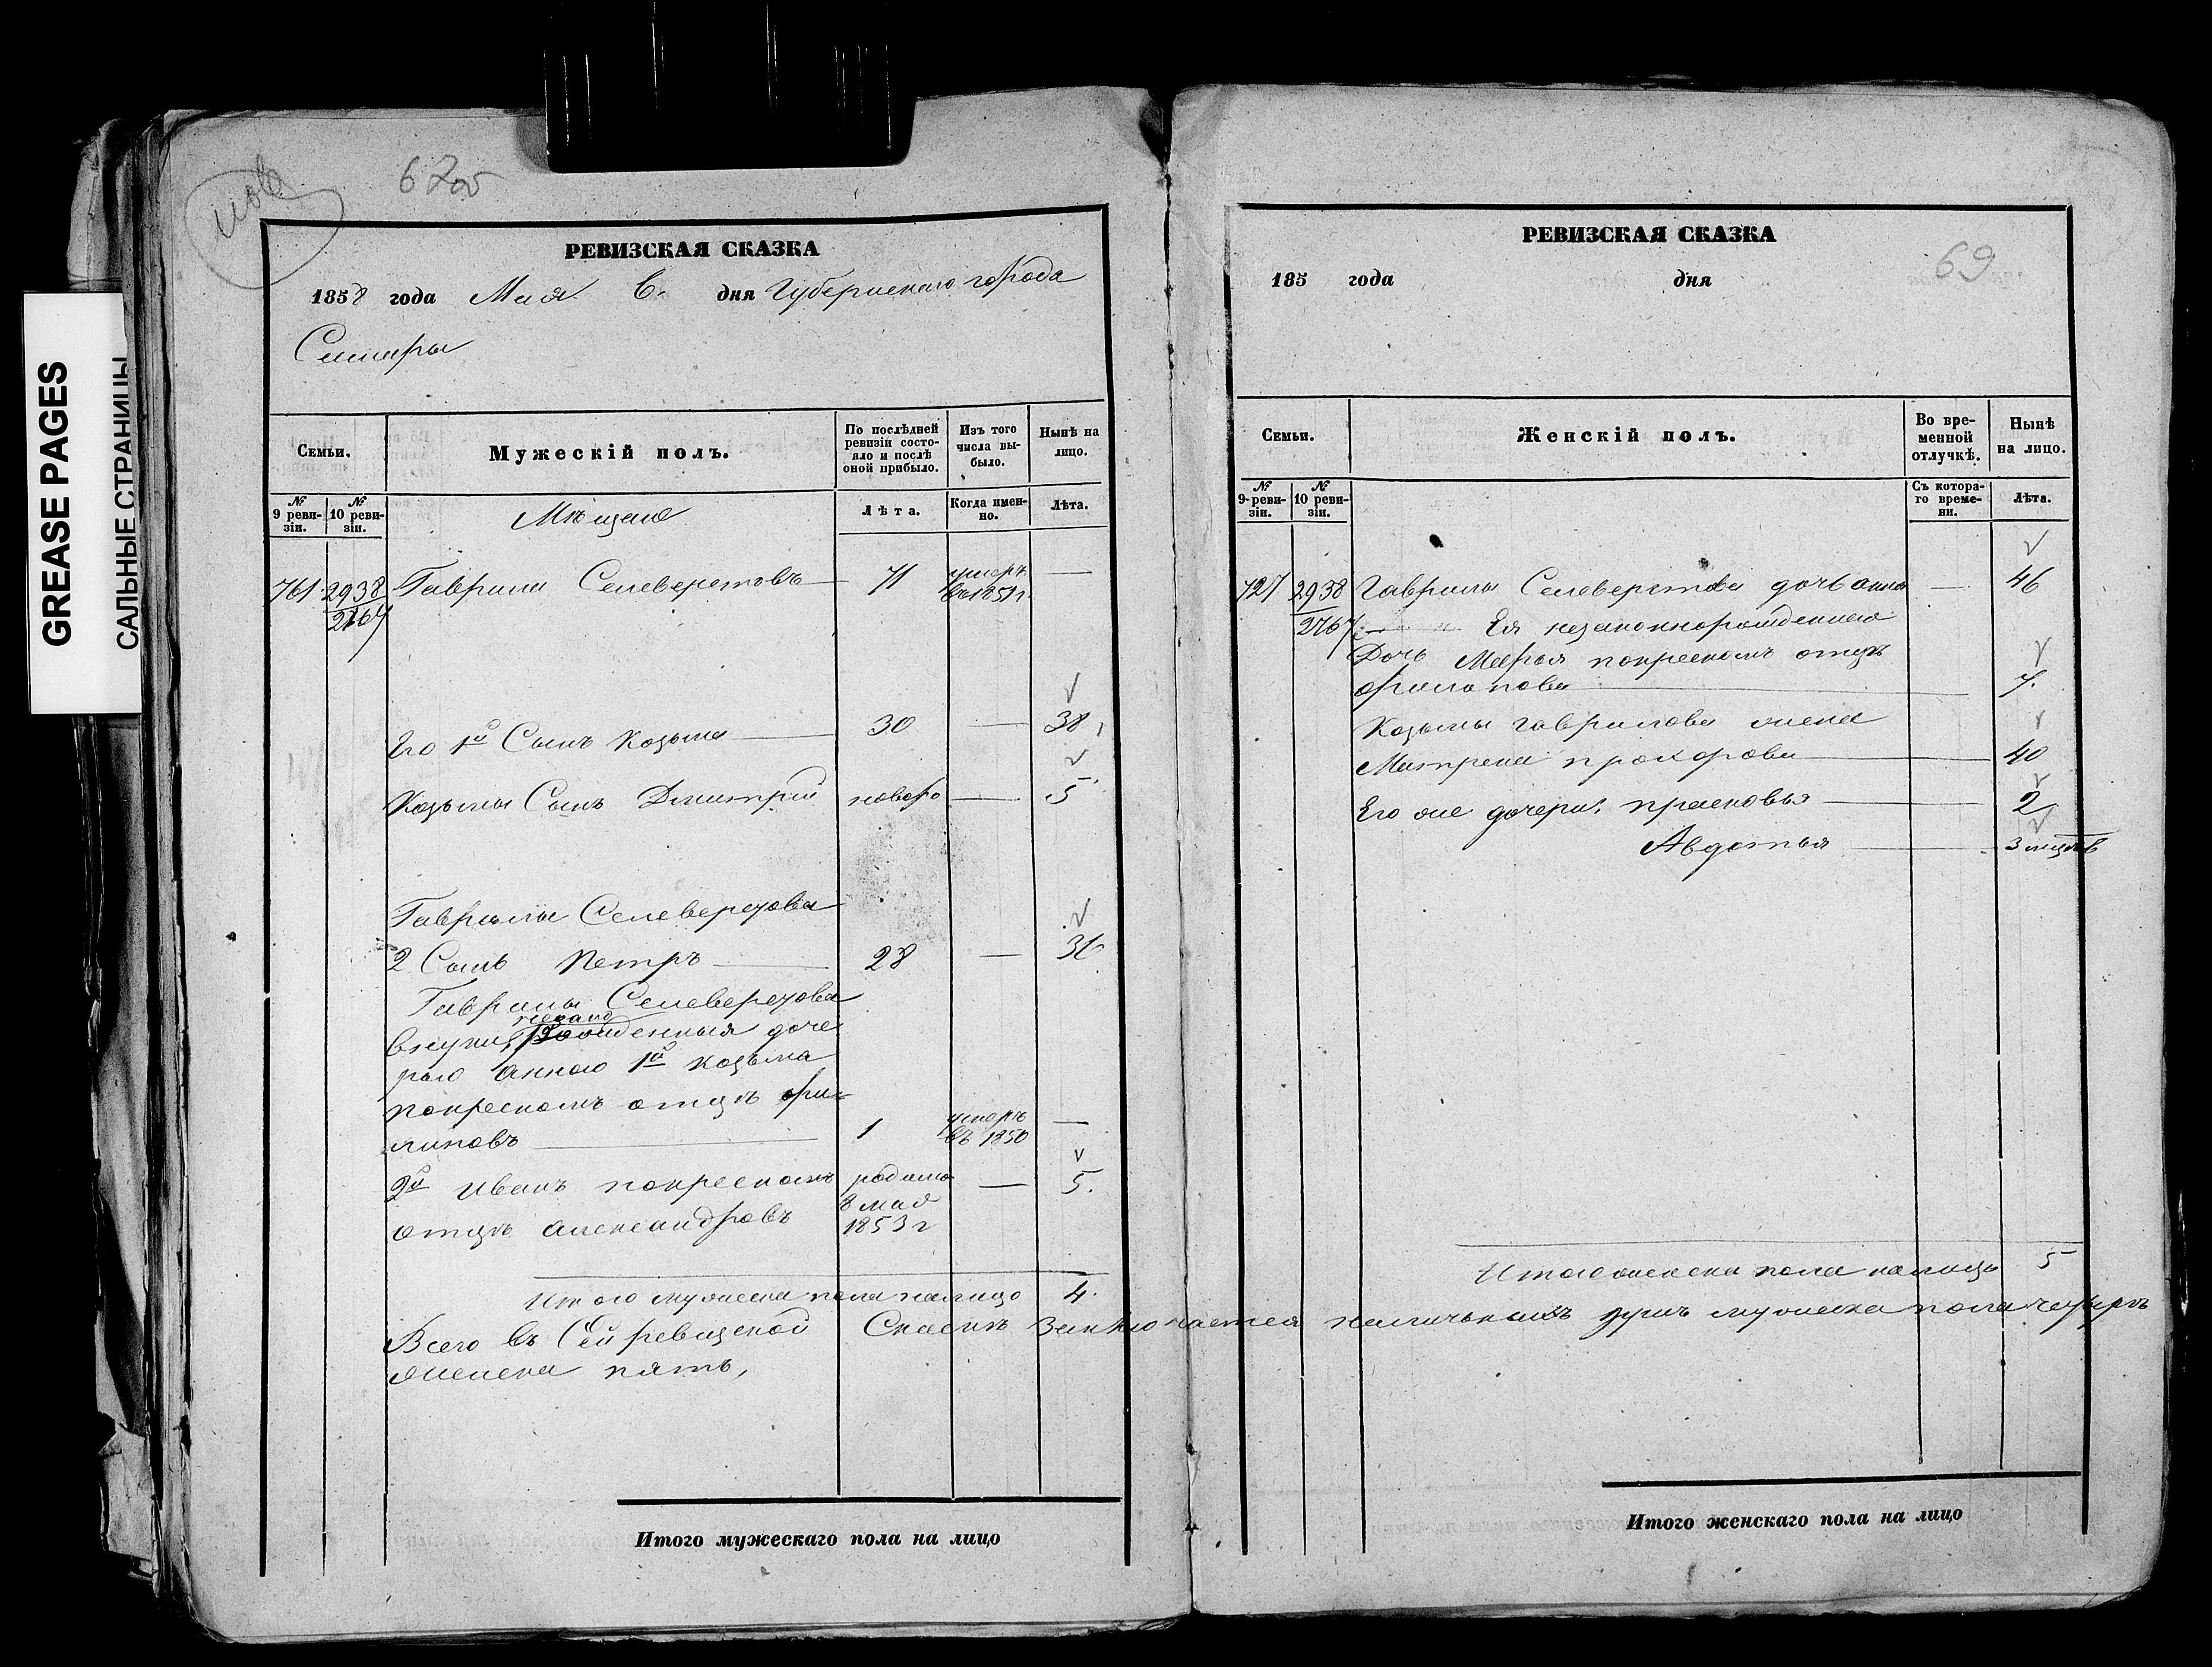 GREASE PAGES
САЛЬНЫЕ СТРАНИЦЫ
РЕВИЗСКАЯ СКАЗКА
1858 года Мая 6 дня Губернскаго города
Самары
Семьи.
Мужескій полъ.
По послѣдней ревизіи состояло и послѣ оной прибыло.
Изъ того числа выбыло.
Нынѣ на лицо.
№ 9 ревизіи.
№ 10 ревизіи.
Мѣщане
Лѣта.
Когда именно.
Лѣта.
761 2938 Гаврила Селеверстовъ 71 умеръ въ 1851 г.
2767
Его 1й Сынъ Козьма 30 38
Козьмы Сынъ Дмитрій новоро 5
Гаврилы Селеверстова
2 Сынъ Петръ 28 36
Гаврилы Селеверстова
внуки, незако рожденныя доче
рью Анною 1й Козьма
покрестномъ отцѣ Фи-
липовъ 1 умеръ въ 1850
2й Иванъ покрестномъ родился 5.
отцѣ Александровъ 8 мая 1853 г
Итого мужеска пола налицо 4.
Всего въ Сей ревизской Сказкѣ Заключается наличныхъ душъ мужеска пола четыре
женска пять,
Итого мужескаго пола на лицо
РЕВИЗСКАЯ СКАЗКА
69
185 года дня
Семьи.
Женскій полъ.
Во временной отлучкѣ.
Нынѣ на лицо.
№ 9-ревизіи.
№ 10 ревизіи.
Съ котораго времени.
Лѣта.
727 2938 Гаврилы Селеверстова дочь Анна 46
2767 Ея незаконнорожденная
Дочь Марья покрестномъ отцѣ
Филипова 7.
Козьмы Гаврилова жена
Матрена Прохорова 40
Его же дочери, Прасковья 2
Авдотья 3 мѣсяцовъ
Итого женска пола налицо 5
Итого женскаго пола на лицо